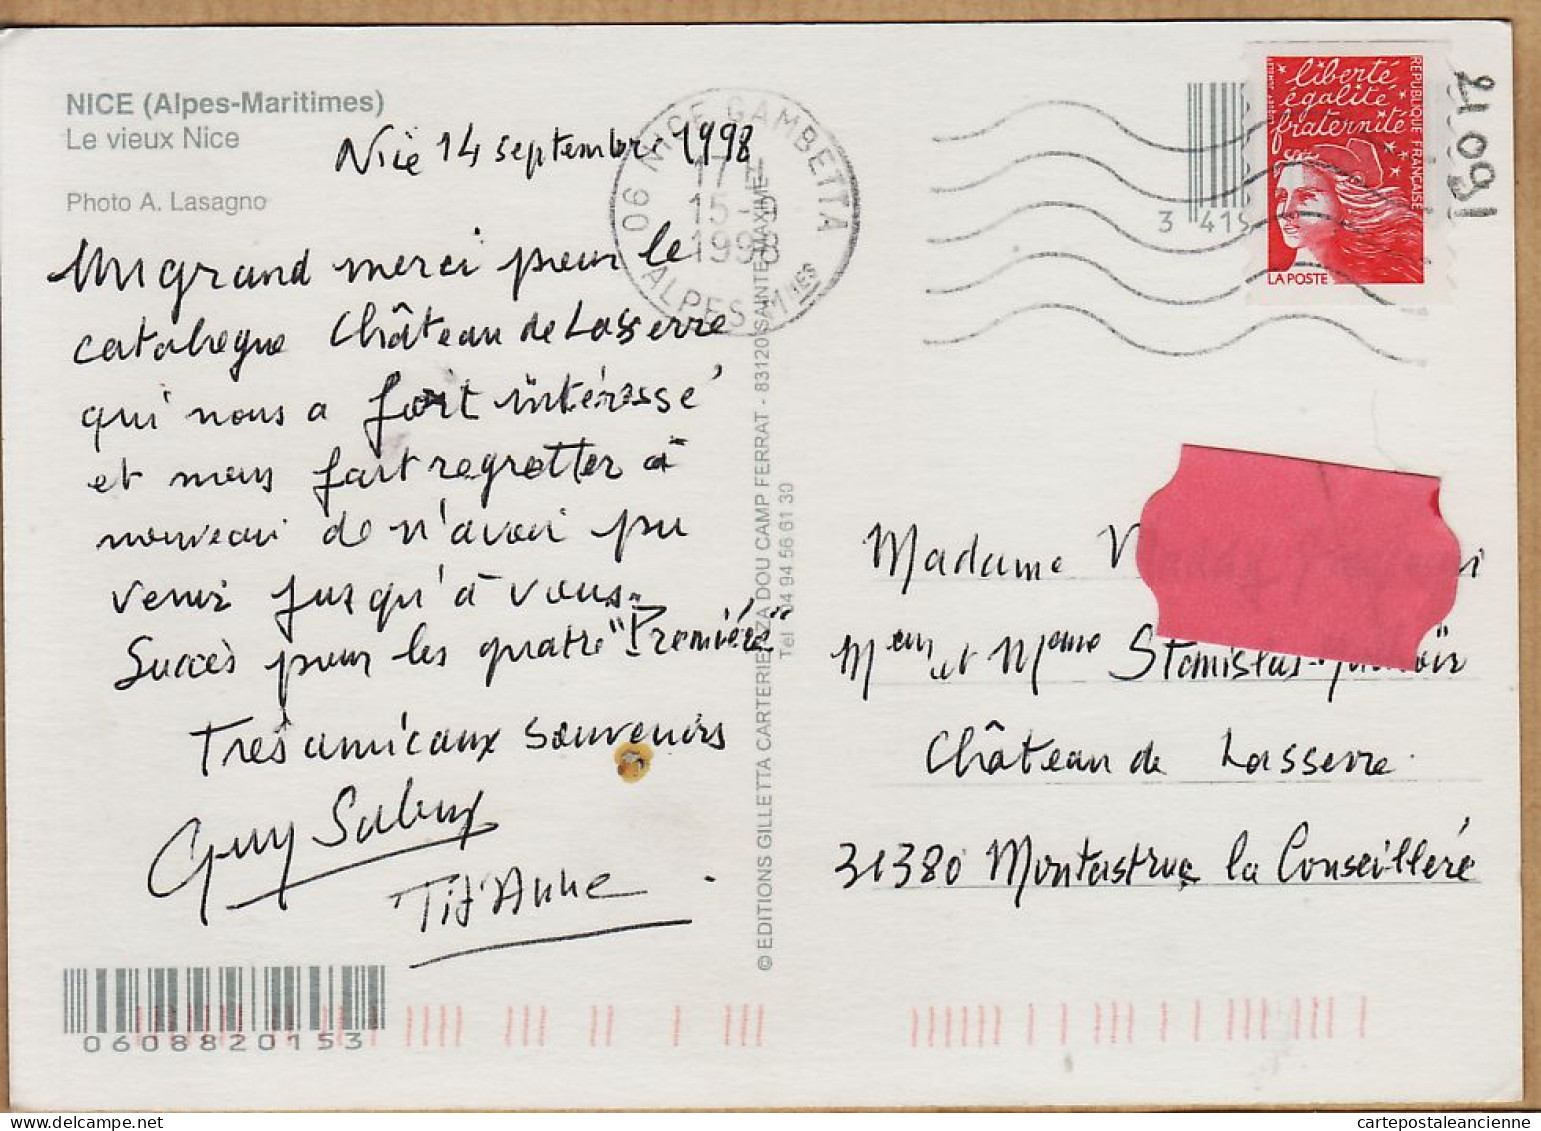 NICE (Alpes-Maritimes)
Le vieux Nice
Photo A. Lasagno
Nice 14 septembre 1998
Un grand merci pour le
catalogue Château de Lasserre
qui nous a fort intéressé
et nous fait regretter à
nouveau de n'avoir pu
venir jusqu'à vous.
Succès pour les quatre "Premières"
Très amicaux souvenirs
Guy
Tit'Anne
0608820153
© EDITIONS GILLETTA CARTEREZZA DOU CAMP FERRAT - 83120 SAINTE-MAXIME
Tél 04 94 56 61 30
06 NICE GAMBETTA
17 H
15-9
1998
ALPES MMES
3 415
liberté
égalité
fraternité
REPUBLIQUE FRANÇAISE
LA POSTE
21091
Madame
Meur et Mme Stanislas
Château de Lasserre.
31380 Montastruc la Conseillère
cartepostaleancienne
cartepostaleancienne.com